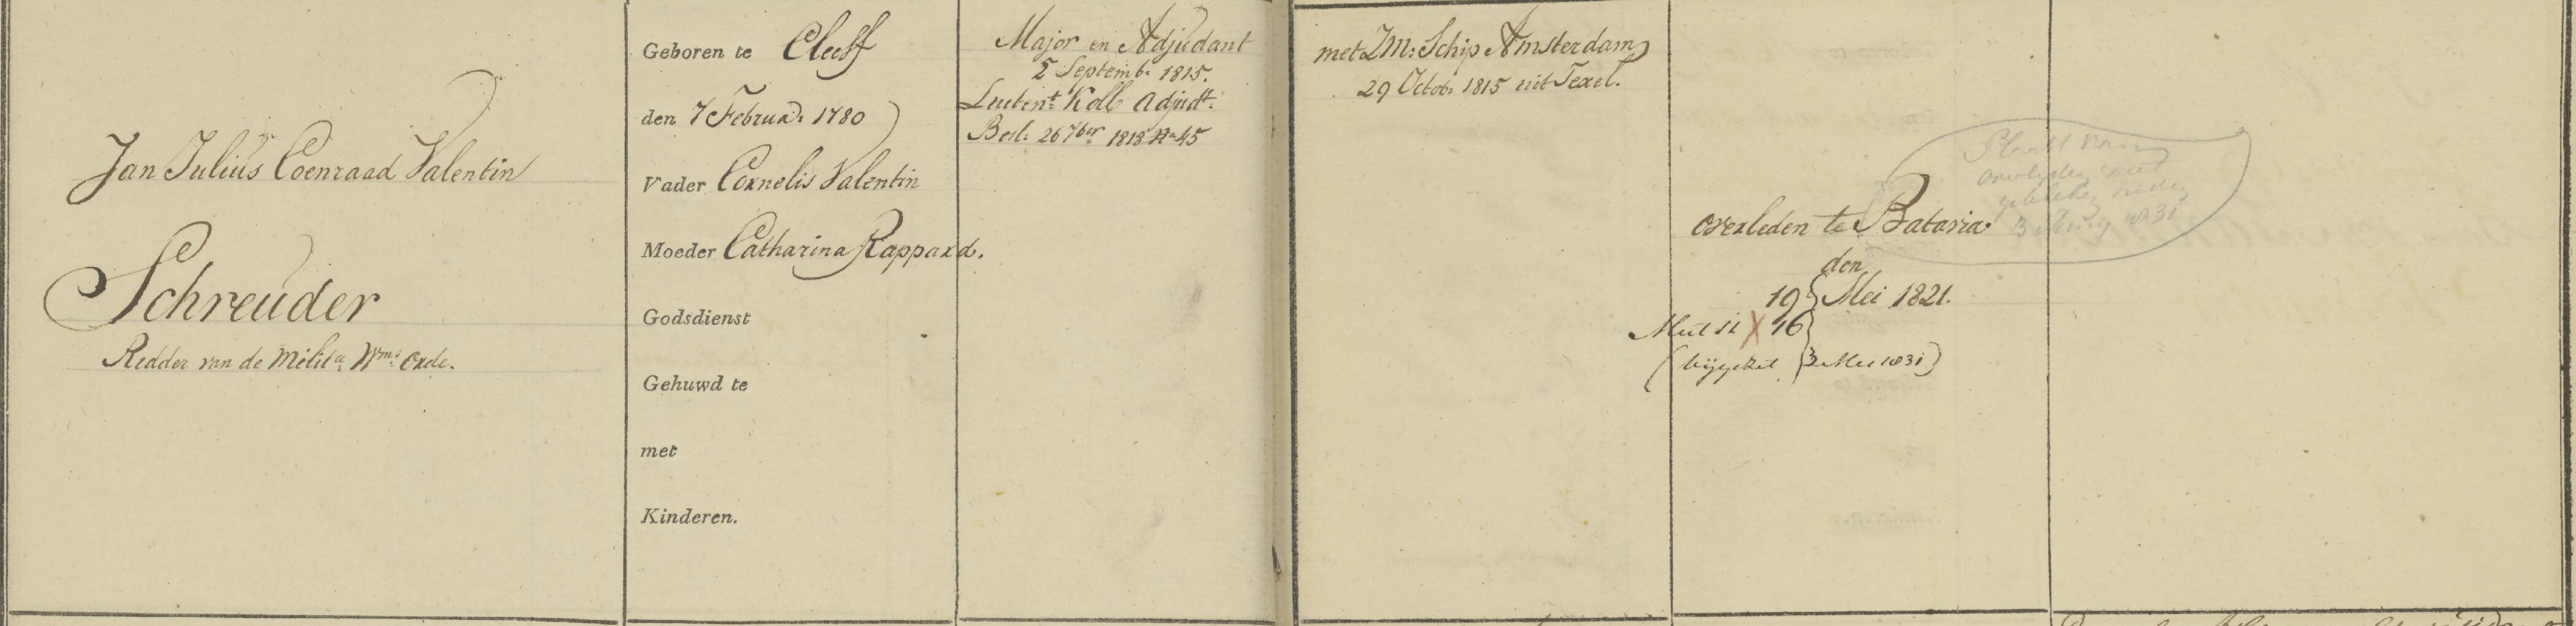 Jan Julius Coenraad Valentin
Schreuder
Redder van de Milita Wms Orde.
Geboren te Cleeff
den 7 Februa: 1780
Vader Cornelis Valentin
Moeder Catharina Rappard.
Godsdienst
Gehuwd te
met
Kinderen.
Major en Adjudant
5 Septemb: 1815.
Luitent: Koll Adjudt:
Besl: 26 7ber 1818 No 45
met ZM: Schip Amsterdam
29 Octob: 1815 uit Texel.
overleden te Batavia
den
19 Mei 1821.
16
3 Mei 1831)